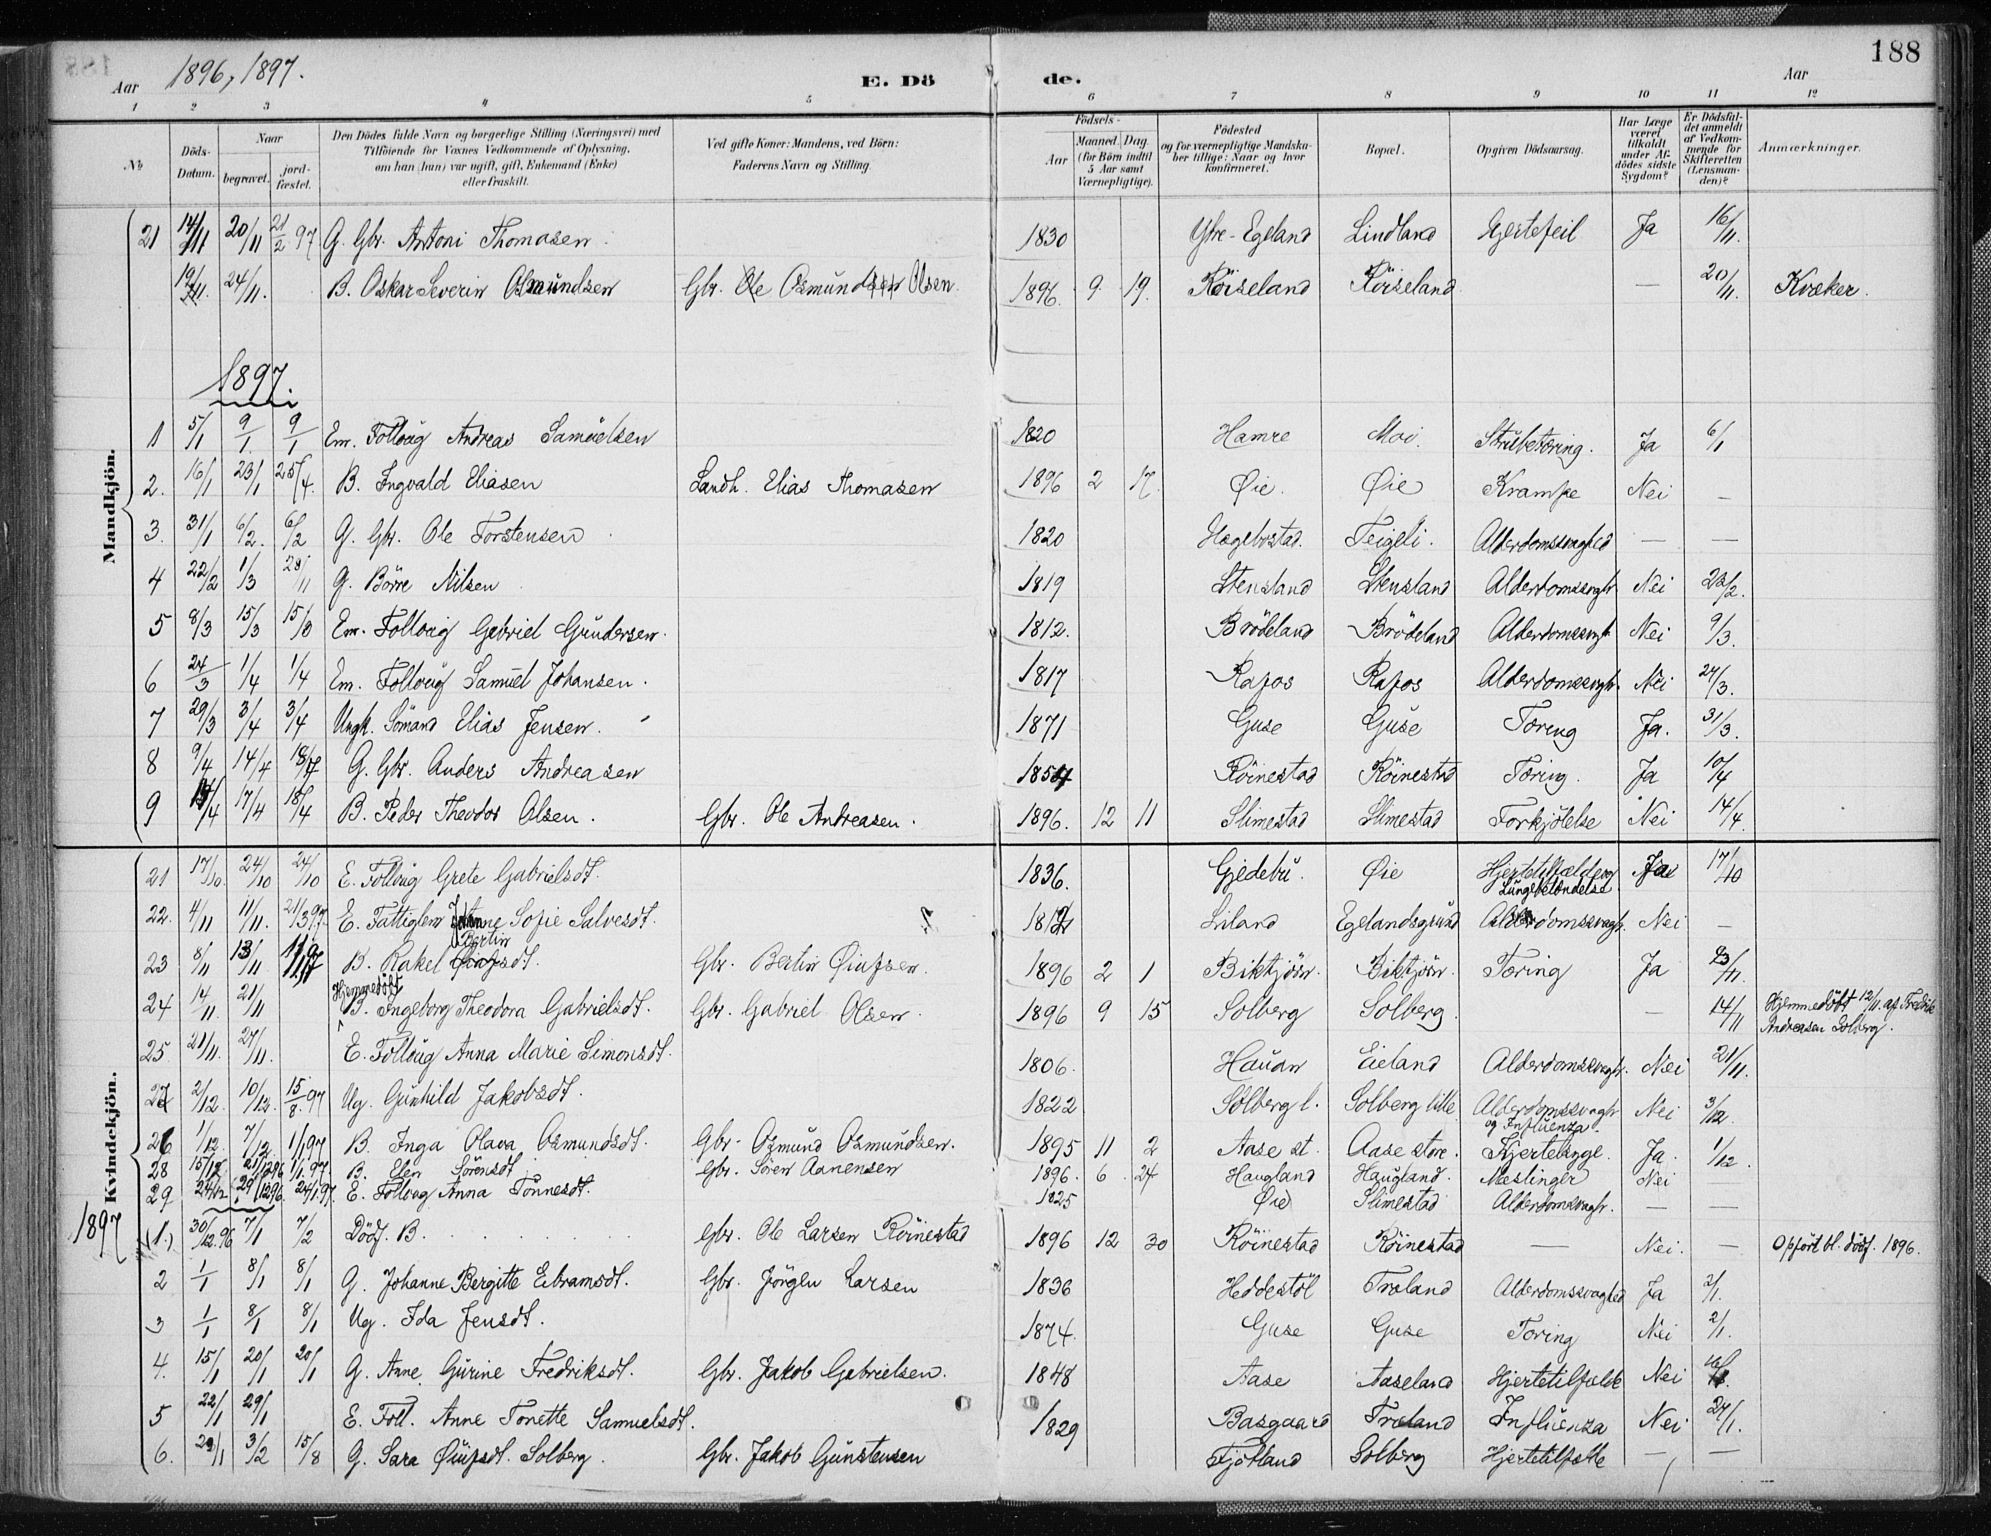 188
Aar 1896, 1897. E. Dö de. Aar
1 2 3 4 5 6 7 8 9 10 11 12
№ Döds-Datum. Naar begravet. jord-fæstet. Den Dödes fulde Navn og borgerlige Stilling (Næringsvei) med Tilföiende for Voxnes Vedkommende af Oplysning, om han (hun) var ugift, gift, Enkemand (Enke) eller fraskilt. Ved gifte Koner: Mandens, ved Börn: Faderens Navn og Stilling. Födsels- Aar Maaned. Dag. (for Börn indtil 5 Aar samt Værnepligtige). Födested og for værnepligtige Mandska-ber tillige: Naar og hvor konfirmeret. Bopæl. Opgiven Dödsaarsag. Har Læge været tilkaldt under Af-dödes sidste Sygdom? Er Dödsfal-det anmeldt af Vedkom-mende for Skifteretten (Lensman-den)? Anmærkninger.
Mandkjön.
21 14/11 20/11 21/2 97 G. Gbr. Antoni Thomasen 1830 Ytre-Egeland Lindland Hjertefeil Ja 16/11.
19/11. 24/11. B. Oskar Severin Osmundsen Gbr. Osmund Olsen 1896 9 19. Röiseland Röiseland — 20/11. Kvæker.
1897.
1 5/1 9/1 9/1 Em. Folloug Andreas Samuelsen 1820 Hamre Moi Strubetæring. Ja 6/1
2. 16/1 23/1 25/4. B. Ingvald Eliasen Landh. Elias Thomasen 1896 2 17. Øie. Øie Krampe Nei —
3. 31/1 6/2. 6/2 G. Gbr. Ole Torstensen 1820 Hægebostad. Teigeli. Alderdomssvaghed — —
4 22/2 1/3 28/11 G. Börre Nilsen 1819 Stensland Stensland Alderdomssvagh. Nei 23/2.
5 8/3 15/3 15/3 Em. Folloug Gabriel Gundersen. 1812. Brödeland Brödeland Alderdomssvagh. Nei 9/3.
6 24/3 1/4 1/4 Em. Folloug Samuel Johansen. 1817 Rafos Rafos Alderdomssvagh. Nei 27/3.
7 29/3 3/4 3/4 Ungk. Sömand Elias Jensen. 1871 Guse Guse Tæring Ja. 31/3.
8 9/4 14/4 18/7 G. Gbr. Anders Andreasen 1854 Röinestad Röinestad Tæring. Ja 10/4
9 17/4 18/4 B. Peder Theodor Olsen. Gbr. Ole Andreasen. 1896. 12 11 Slimestad Slimestad Forkjölelse Nei 14/4.
Kvindekjön.
21 17/10. 24/10 24/10 E. Folloug Grete Gabrielsdt. 1836. Gjedebu. Øie Hjertetilfælde og Lungebetændelse Ja 17/10
22. 4/11 11/11. 21/3 97. E. Fattiglem Anne Sofie Salvesdt. Liland Egelandsgrund Alderdomssvagh. Nei —
23 8/11 13/11 B. Rakel Bertin sdt. Gbr. Bertin Øiufsen. 1896 2 1 Birkjörn. Birkjörn. Tæring Ja 23/11.
24 14/11 21/11 Hjemmedöbt B. Ingeborg Theodora Gabrielsdt. Gbr. Gabriel Olsen. 1896 9 15 Solberg Solberg. — 14/11 Hjemmedöbt 12/11. af Fredrik Andreasen Solberg.
25. 21/11. 27/11. E. Folloug Anna Marie Simonsdt. 1806. Hauan Eieland Alderdomssvagh. Nei 21/11.
27 2/12. 10/12. 15/8. 97 Ug. Gunhild Jakobsdt. 1822 Solberg l. Solberg lille Alderdomssvagh og Influenza. Nei 3/12.
26 1/12. 7/12. 1/1 97 B. Inga Olava Osmundsdt. Gbr. Osmund Osmundsen. 1895 11 2 Aase st. Aase store. Hjertesyge. Ja. 1/12.
28 15/12 1/1 97. B. Elen Sörensdt Gbr. Sören Aanensen 1896. 6. 24 Haugland Haugland. Mæslinger Nei —
29 24/12 29/12 96. 24/1 97. E. Folloug Anna Tönnesdt. 1825 Øie Slimestad Alderdomssvagh. — —
1897 (1.) 30/12. 96 7/1 7/2 Dödf. B. Gbr. Ole Larsen Röinestad 1896 12 30 Röinestad Röinestad — Nei. — Opfört bl. dödf. 1896.
2 1/1 8/1 8/1 G. Johanne Bergitte Eibramsdt. Gbr. Jörgen Larsen 1836 Heddestöl Træland Alderdomssvaghed Ja 2/1.
3 1/1 8/1 8/1 Ug. Ida Jensdt. 1874. Guse Guse Tæring Nei 2/1.
4. 15/1 20/1 20/1 G. Anne Gurine Fredriksdt. Gbr. Jakob Gabrielsen. 1848 Aase Aaseland Hjertetilfælde Nei
5 22/1 29/1 E. Foll. Anne Tonette Samuelsdt. 1829 Basgaard Træland Influenza Nei 24/1.
6. 3/2 15/8 G. Sara Øiufsdt. Solberg. Gbr. Jakob Gunstensen Fjotland Solberg Hjertetilfælde — —